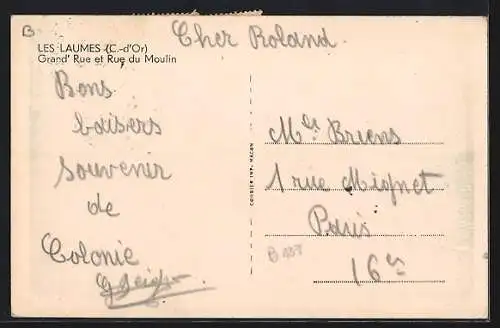 B
Cher Roland
LES LAUMES (C.-d'Or)
Grand' Rue et Rue du Moulin
Bons
baisers
souvenir
de
Colonie
Mlle Briens
1 rue Mignet
Paris
16e
COMBIER IMP. MACON